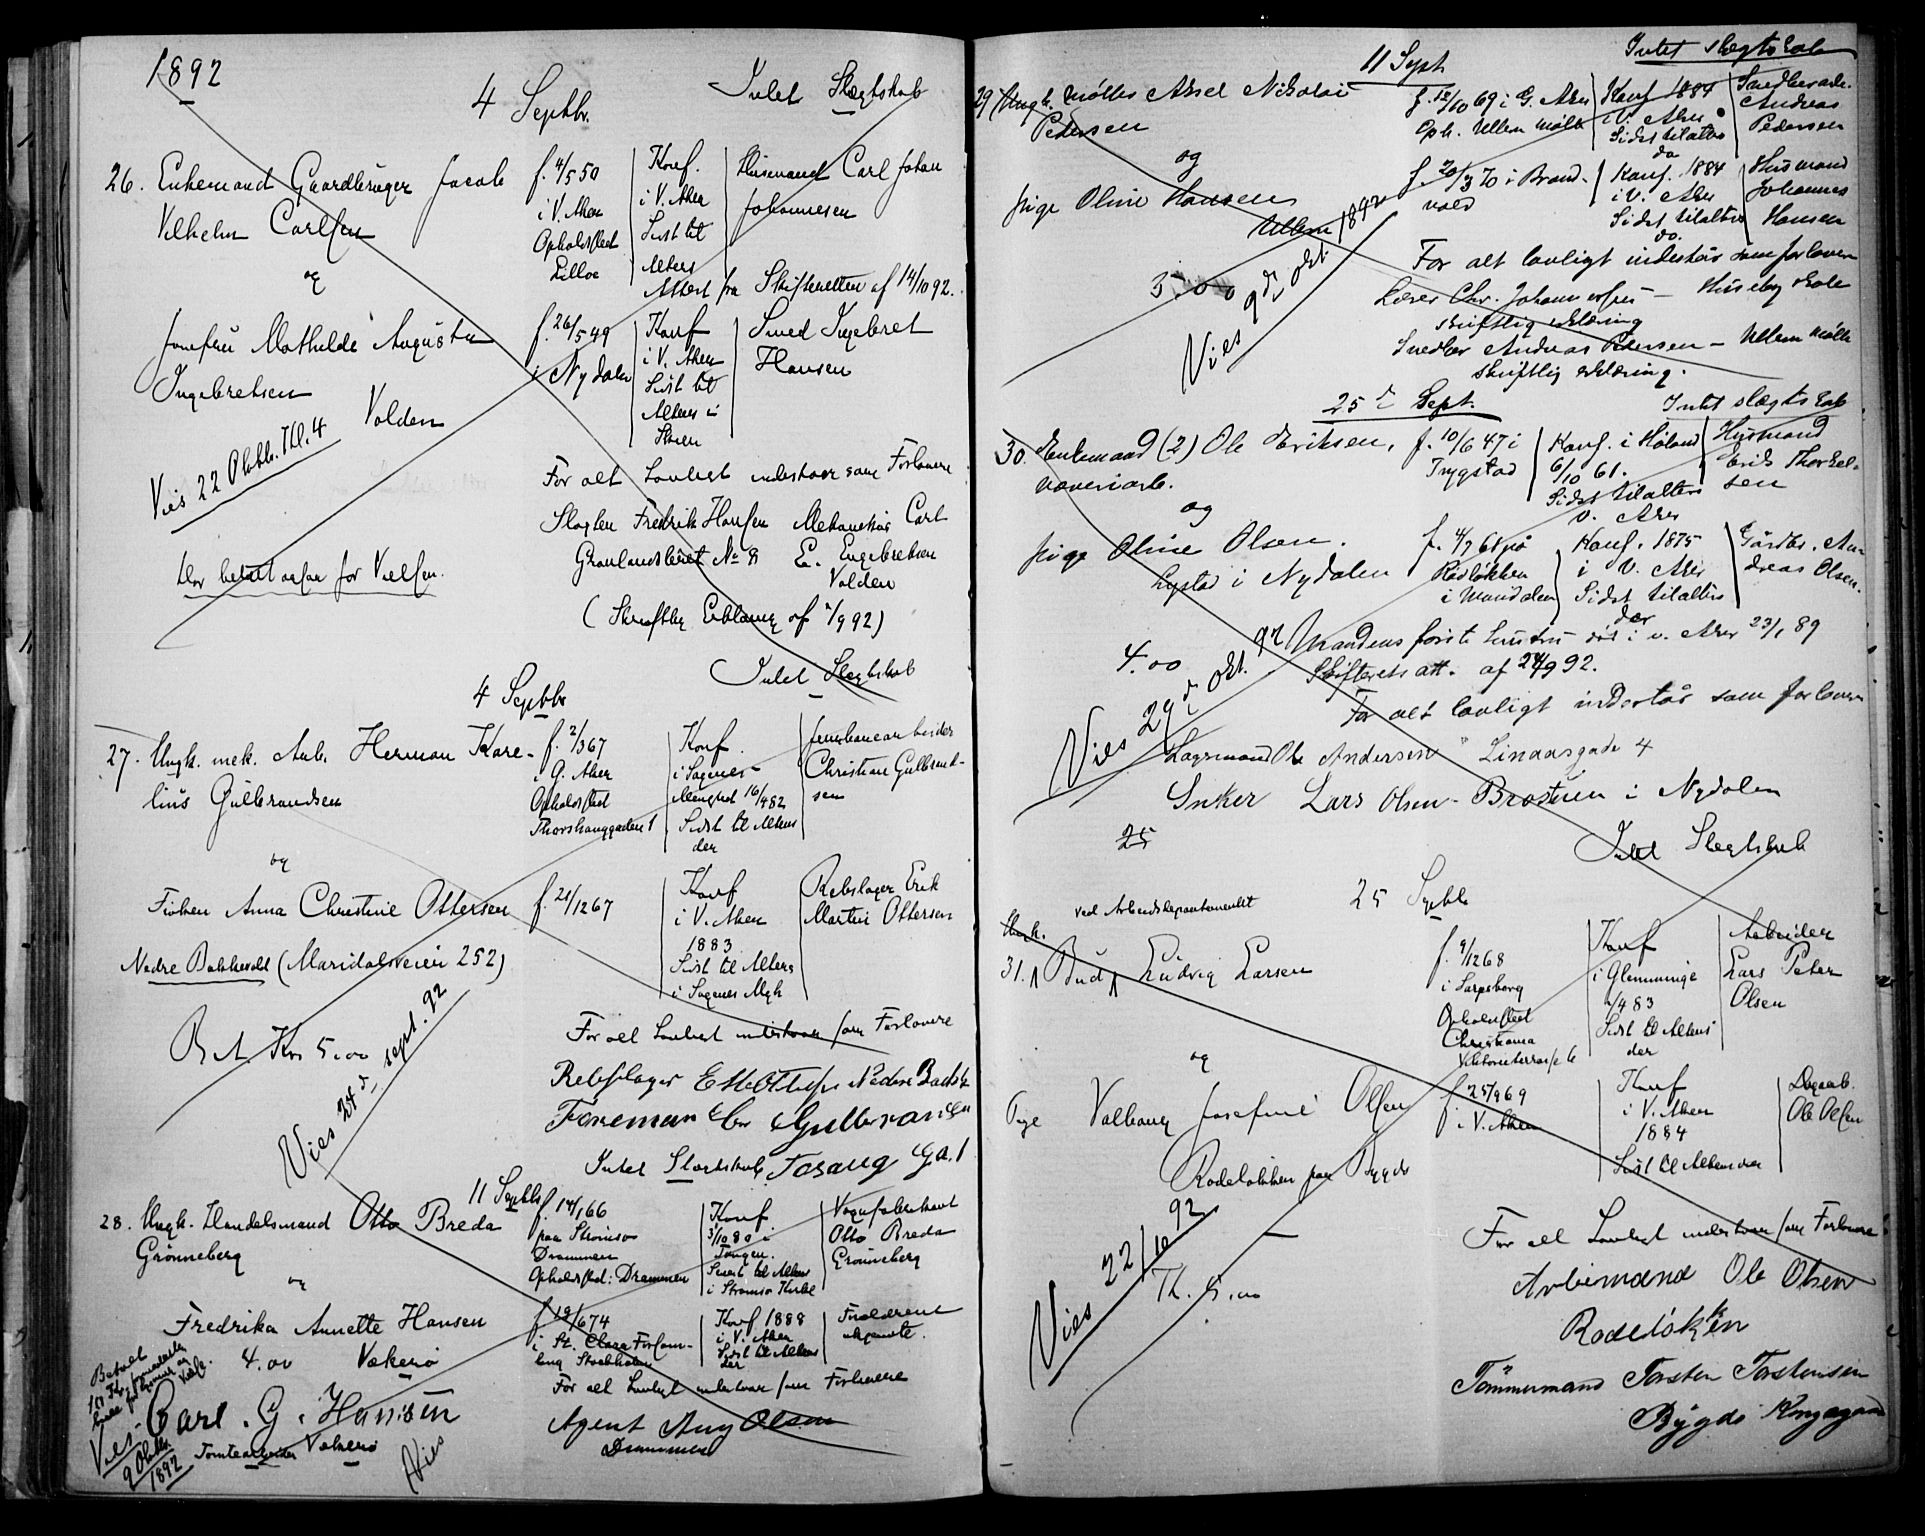 1892
4 Septbr.
Intet Slægtskab
26. Enkemand Gaardbruger Jacob
Vilhelm Carlsen
f. 4/5 50
i V. Aker
Opholdssted
Lilloe
Konf.
i V. Aker
Sidst til
Alters
Husmand Carl Johan
Johannesen
Attest fra Skifteretten af 14/10 92.
og
Jomfru Mathilde Augusta
Ingebretsen
Volden
f. 26/5 49
i Nydalen
Konf
i V. Aker
Sidst til
Alters i
Smed Ingebret
Hansen
Vies 22 Oktb. Kl. 4
For alt Lovligt indestaar som Forlovere
Fredrik Hansen Mekanikus Carl
Grønlandsleret No 8 E. Engebretsen
Volden
Har betalt for Vielsen.
(Skriftlig Erklæring af 2/9 92)
4 Septbr
Intet Slegtskab
27. Ungk. mek. Arb. Herman Kare-
lius Gulbrandsen
f. 2/3 67
i G. Aker
Opholdssted
Thorshauggaden 1
Konf.
i Sagenes
Menighed 16/4 82
Sidst til Alters
der
Christian Gulbrand-
sen
og
Frøken Anna Christine Ottersen
Nedre Bakkevold (Maridalsveien 252)
f. 21/12 67
Konf
i V. Aker
1883
Sidst til Alters
i Sagenes Mgh
Rebslager Erik
Martin Ottersen
Bet Kr 5.00
Vies 24de sept. 92
For alt Lovligt indestaar som Forlovere
Rebslager E M Ottersen Nedre
Formman Chr Gulbransen
Intet Slægtskab Torsaug Ga. 1
11 Septbr
28. Ungk. Handelsmand Otto Breda
Grönneberg
f. 14/1 66
paa Strömsø
Drammen
Opholdsted: Drammen
Konf.
3/10 80 i
Tangen.
Sidst til Alters
i Strømsø Kirke
Vognfabrikant
Otto Breda
Grönneberg
og
Fredrika Annette Hansen
4.00 Vækerø
f. 19/6 74
i St. Clara Forsam-
ling Stockholm
Konf 1888
i V. Aker
Sidst til Alters
der
Forældrene
ukjendte.
Betalt
For alt Lovligt indestaar som Forlovere
Carl. G. Hansen
Tomtearbeider Vækerø
Agent Aug Olsen
Drammen
Vies
9 Oktbr
1892
Vies
11 Sept
Intet slægtskab
29 Ungk. Møller Aksel Nikolai
Pedersen
f. 12/10 69 i G. Aker
Oph. Ullern Mølle
Konf 1884
i V. Aker
Sidst tilalters
do
Andreas
Pedersen
og
pige Oline Hansen
Ullern
f. 20/3 70 i Brand-
vold
Konf. 1884
i V. Aker
Sidst tilalters
do.
Husmand
Johannes
Hansen
3.00
Vies 9de Okt. 1892
For alt lovligt indestår som forlovere
Lærer Chr. Johannesen - Huseby skole
skriftlig erklæring
Snedker Andreas Pedersen - Ullern Mølle
skriftlig erklæring.
25de Sept.
Intet slægtskab
30. Enkemand (2) Ole Eriksen,
væveriarb.
f. 10/6 47 i
Trygstad
Konf. i Høland
6/10 61.
Sidst tilalters
V. Aker
Husmand
Erik Thorkel-
sen
og
pige Oline Olsen.
Lystad i Nydalen
f. 4/7 61 på
Rødløkken
i Maridalen
Konf. 1875
i V. Aker
Sidst tilalters
der
Gårdbr. An-
dreas Olsen.
4.00
Mandens første hustru død i v. Aker 23/1 89
Skifterets att. af 24/9 92.
For alt lovligt indestår som forlovere
Vies 29de Okt. 92
Lagermand Ole Andersen Linaasgade 4
Snker Lars Olsen - Bråtuen i Nydalen
25
Intet Slegtskab
25 Septbr
ved Arbeidsdepartementet
Ungk.
31. Bud Ludvig Larsen
f. 9/12 68
i Sarpsborg
Opholdssted
Christiania
Konf
i Glemminge
4 83
Sidst til Alters
der
Arbeider
Lars Peter
Olsen
og
Pige Valborg Josefine Olsen
Rodeløkken paa Bygdø
f. 25/9 69
i V. Aker
Konf
i V. Aker
1884
Sidst til Alters der
Ole Olsen
Vies 22/10 92
Kr. 5.00
For alt Lovligt indestaar som Forlovere:
Arbeimand Ole Olsen
Rodeløkken
Tømmermand Torsten Torstensen
Bygdø Kongsgaard